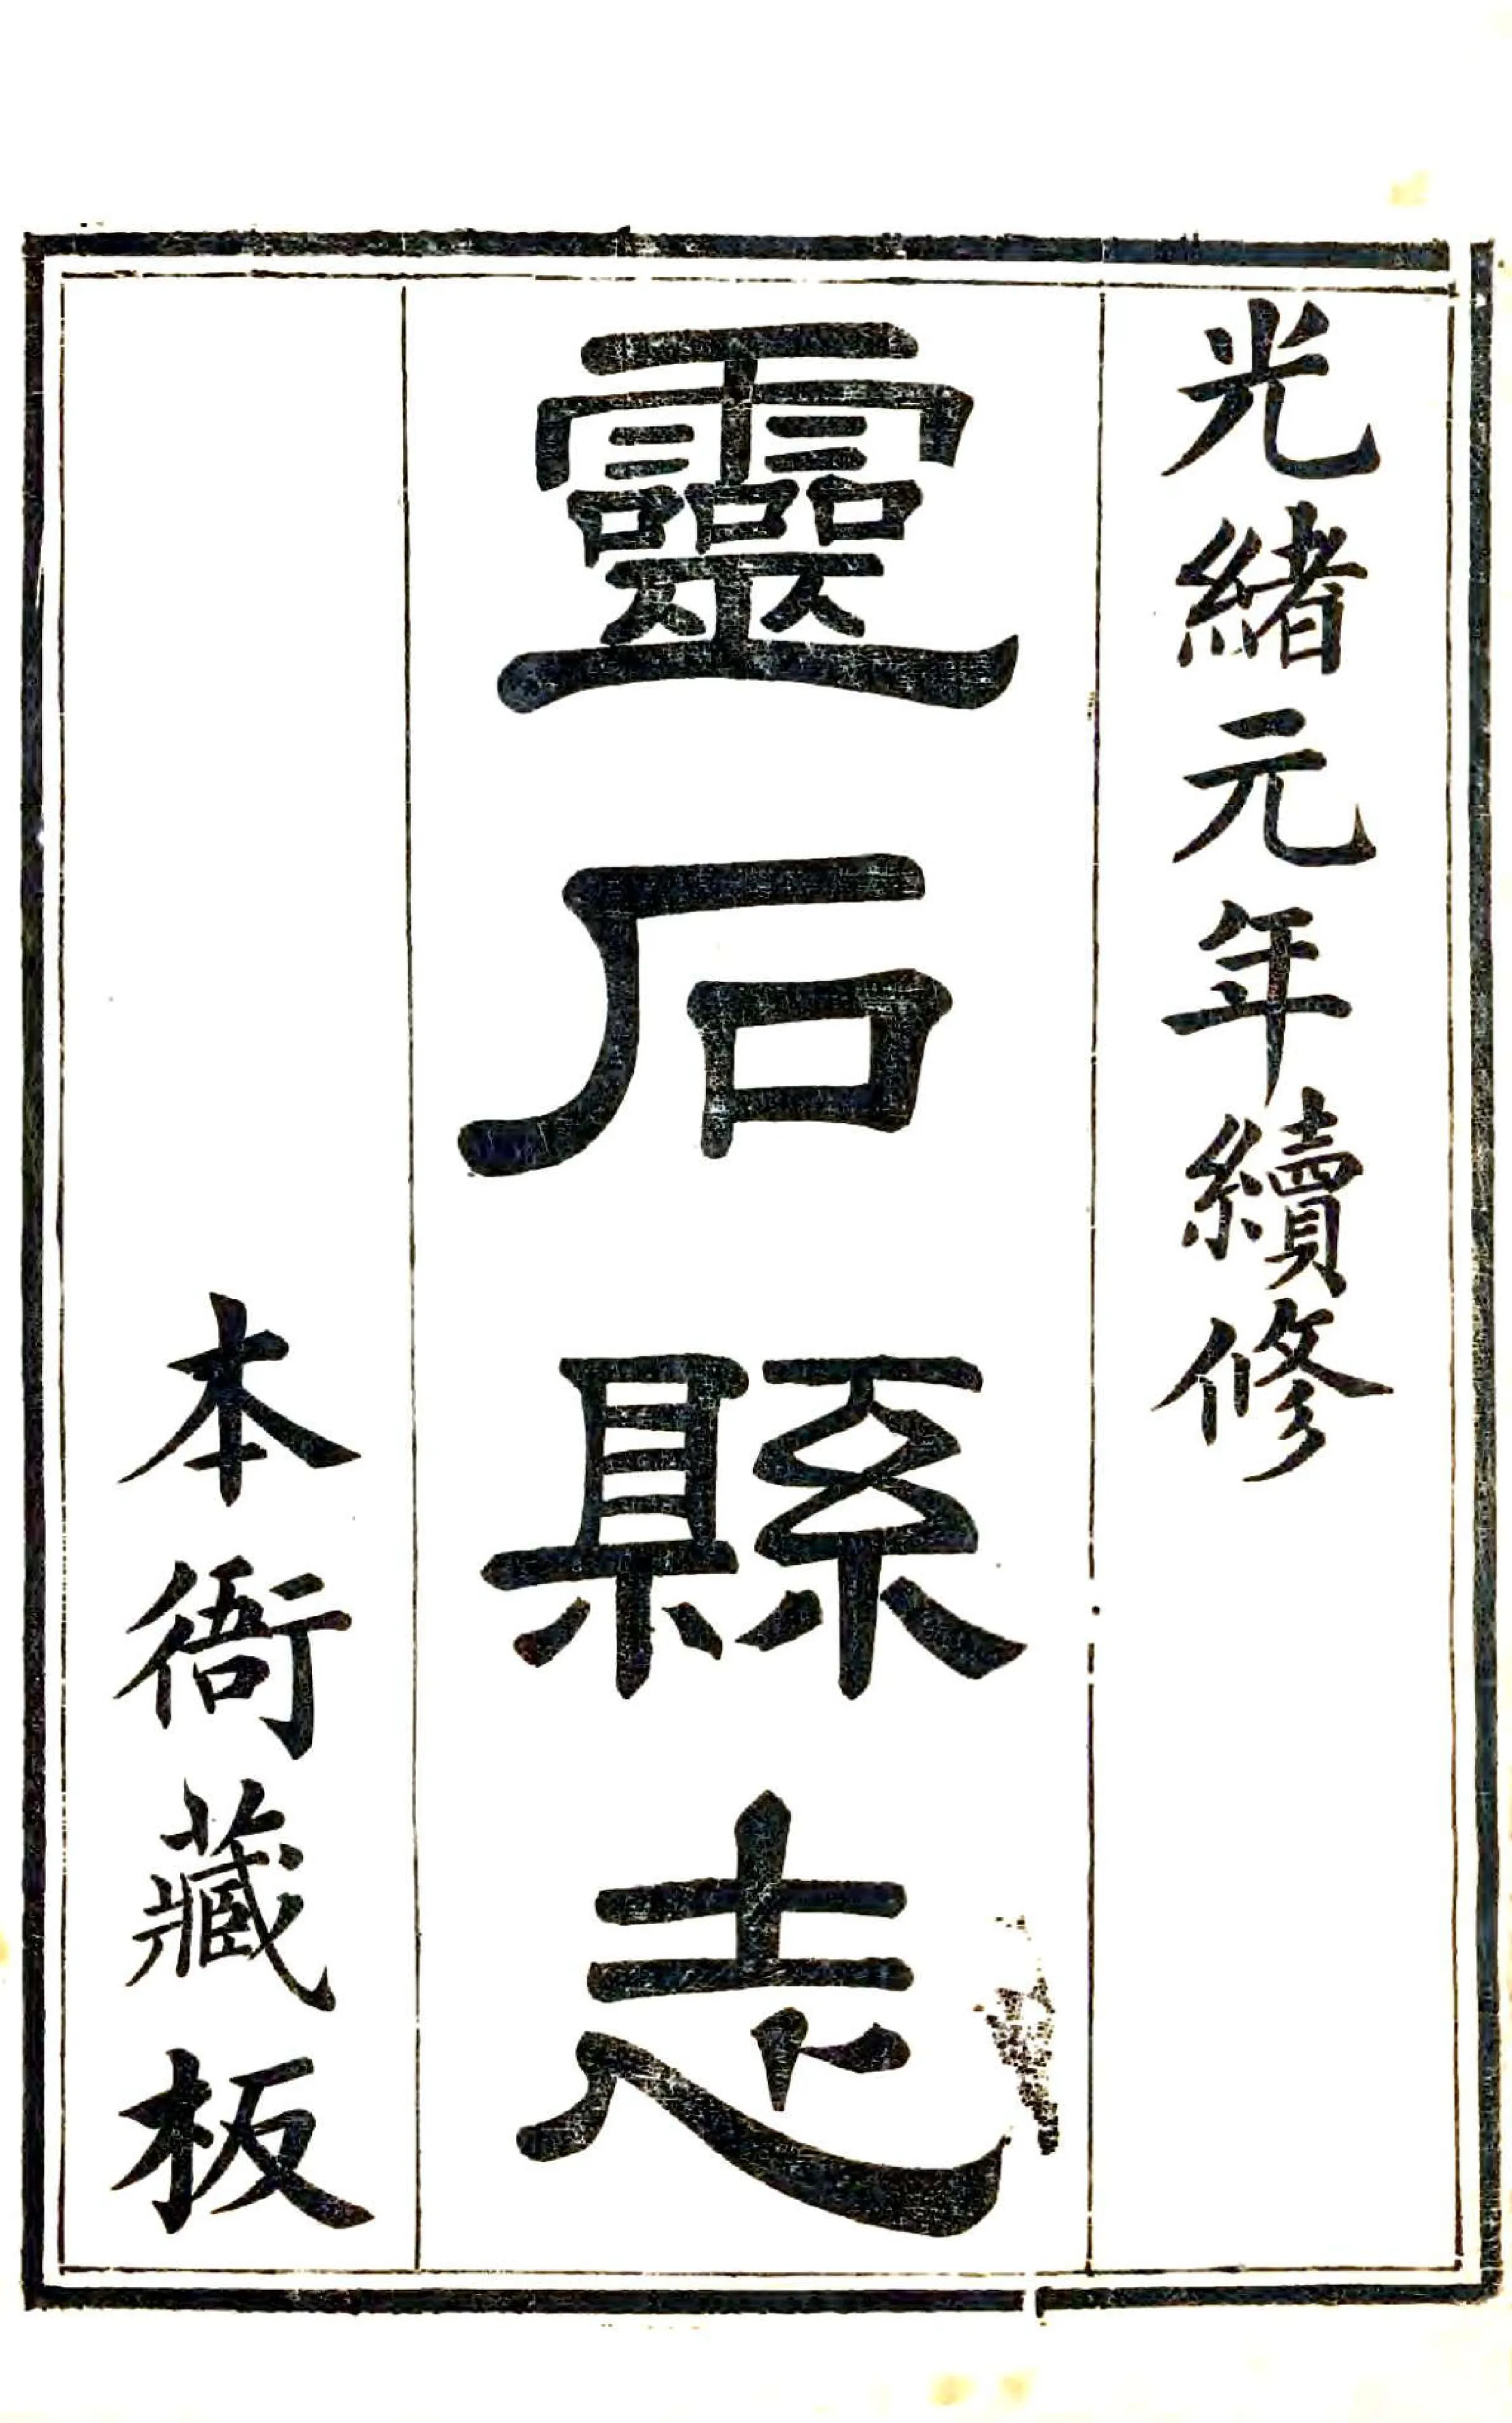 光緒元年續修
靈石縣志
本衙藏板